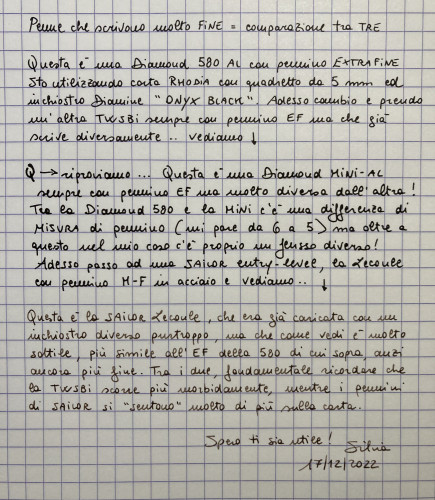 Penne che scrivono molto FINE = comparazione tra TRE
Questa è una Diamond 580 AL con pennino EXTRAFINE
Sto utilizzando carta RHODIA con quadretto da 5 mm ed
inchiostro Diamine "ONYX BLACK". Adesso cambio e prendo
un'altra TWSBi sempre con pennino EF ma che già
scrive diversamente .. vediamo ↓
Q → riproviamo ... Questa è una Diamond MINI-AL
sempre con pennino EF ma molto diversa dall'altra!
Tra la Diamond 580 e la MINI c'è una differenza di
MISURA di pennino (mi pare da 6 a 5) ma oltre a
questo nel mio caso c'è proprio un flusso diverso!
Adesso passo ad una SAILOR entry-level, la Lecoule
con pennino M-F in acciaio e vediamo .. ↓
Questa è la SAILOR Lecoule, che era già caricata con un
inchiostro diverso purtroppo, ma che come vedi è molto
sottile, più simile all'EF della 580 di cui sopra, anzi
ancora più fine. Tra i due, fondamentale ricordare che
la TWSBi scorre più morbidamente, mentre i pennini
di SAILOR si "sentono" molto di più sulla carta.
Spero ti sia utile! Silvia
17/12/2022